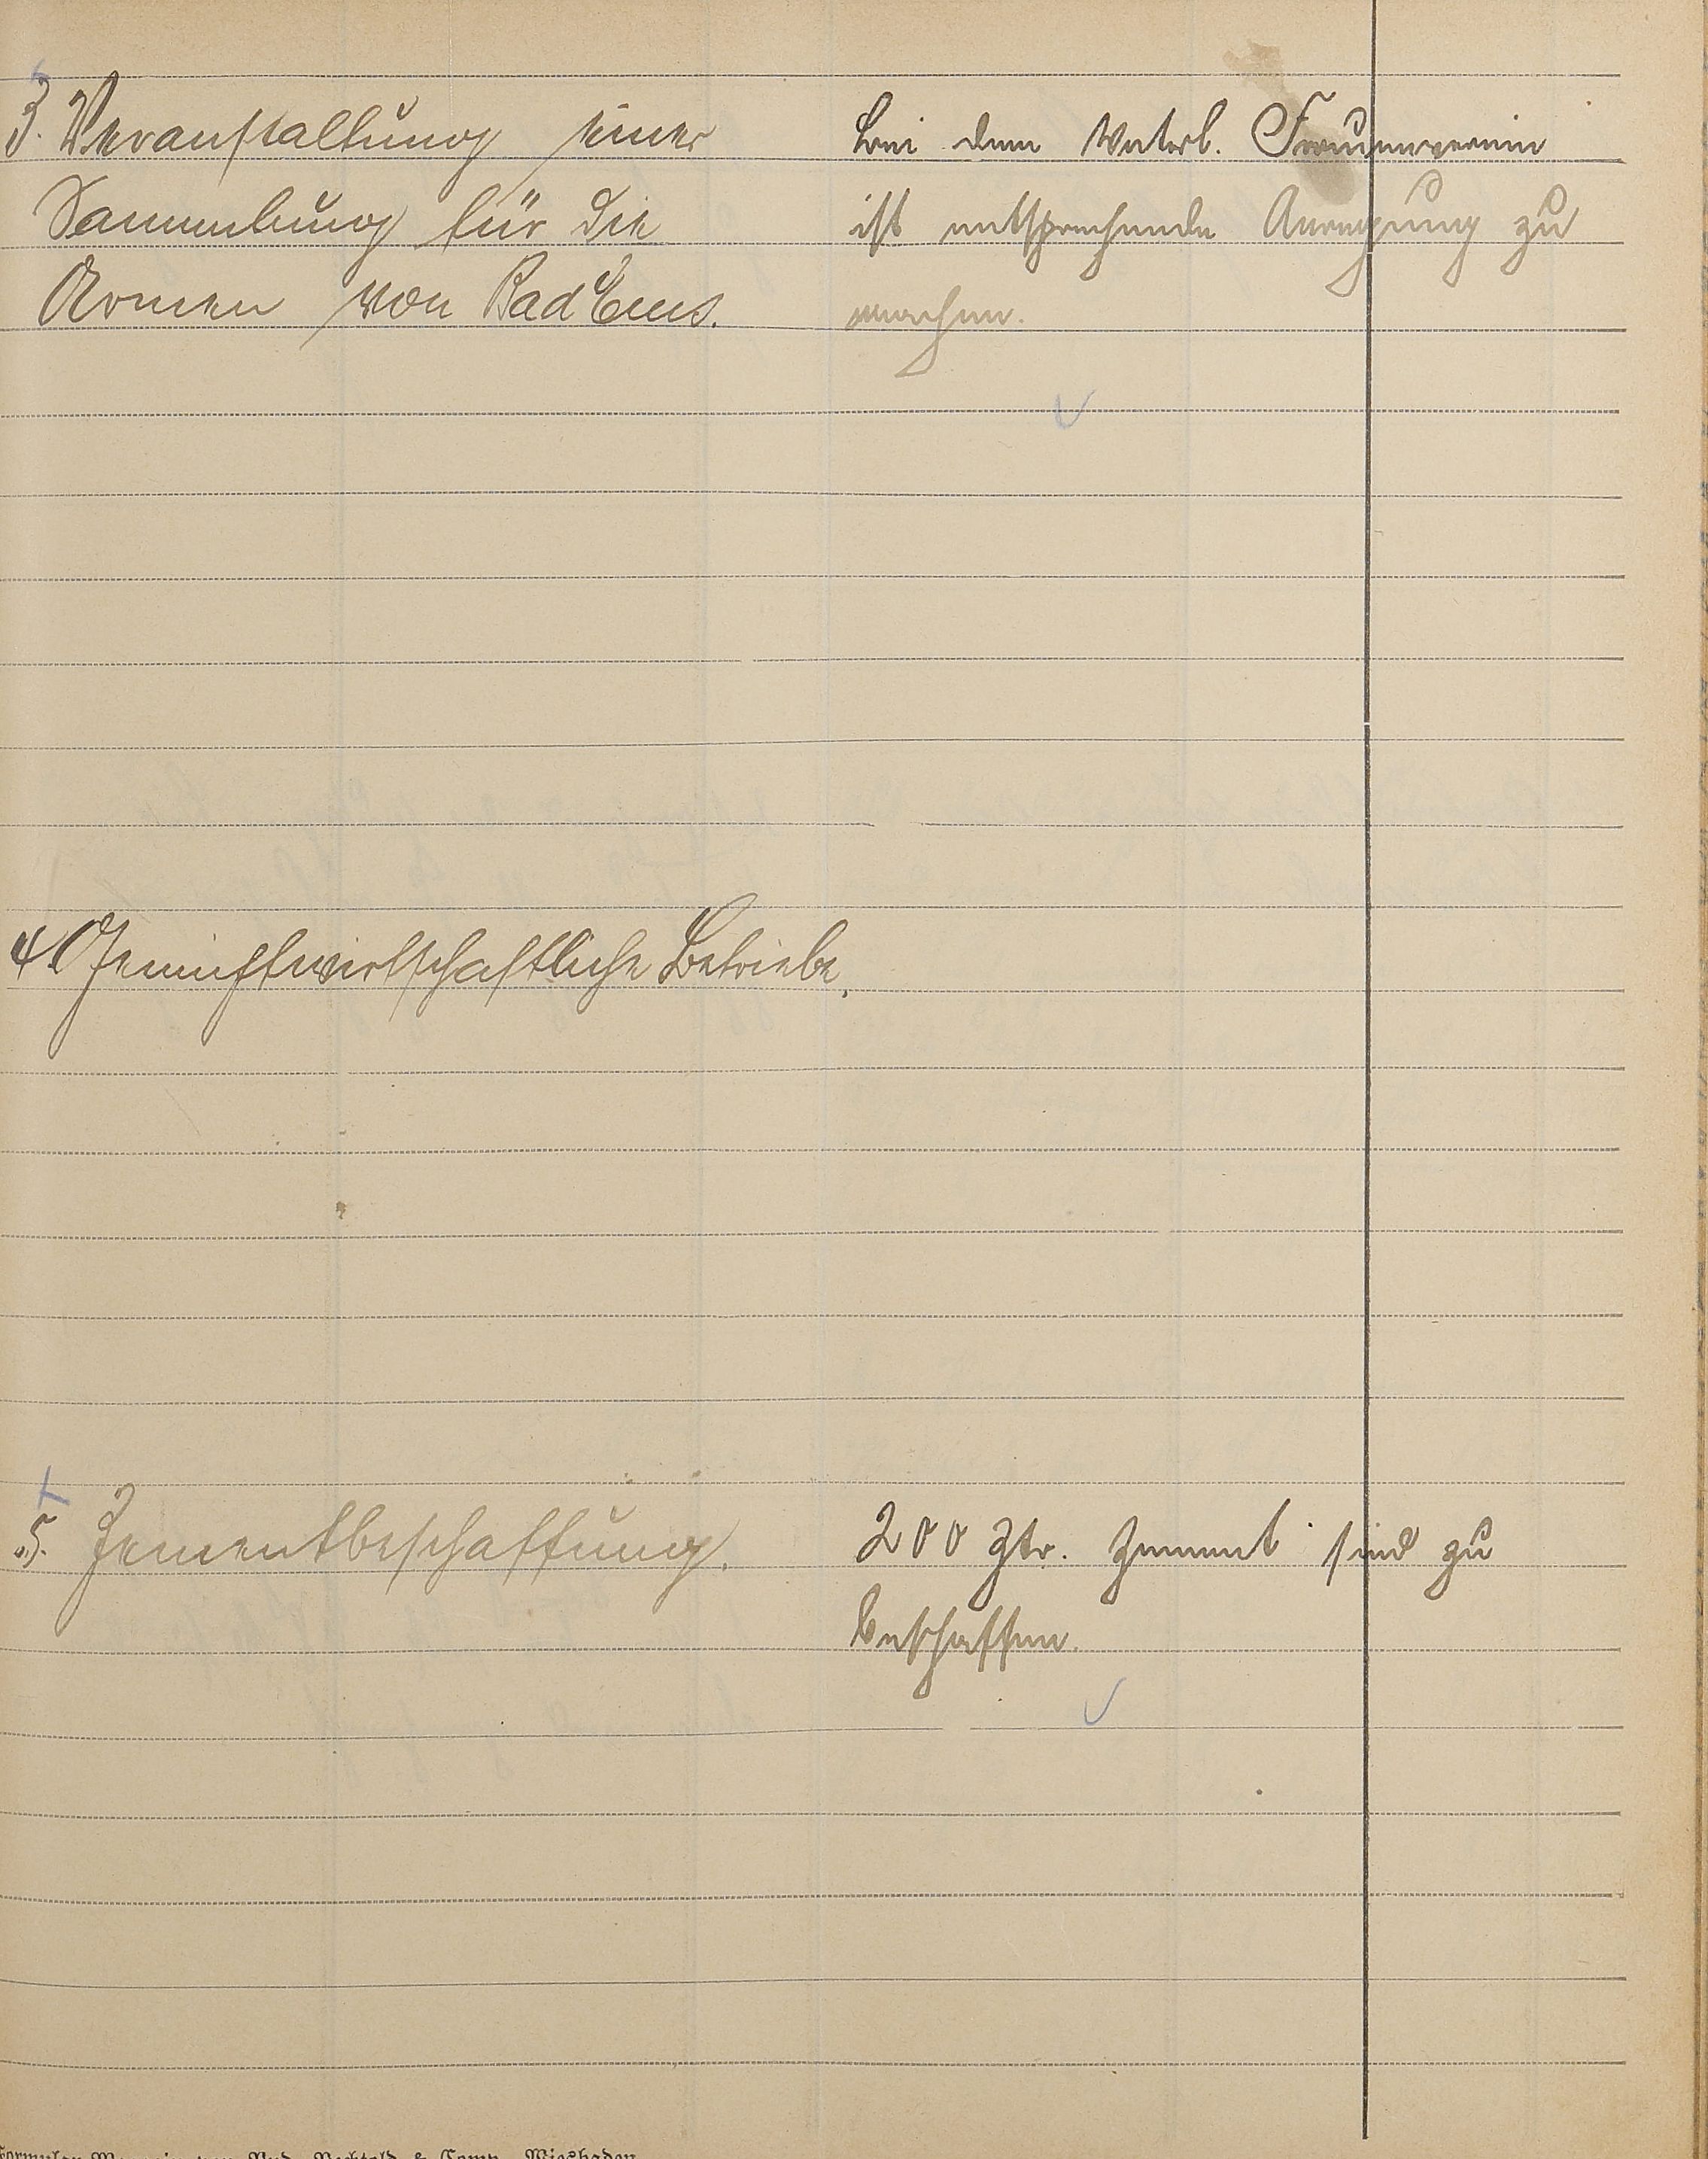 3. Veranstaltung einer
Sammlung für die
Armen von Bad Ems.
Bei dem Vaterl. Frauenverein
ist entsprechende Anregung zu
machen.
4. Gemischtwirtschaftliche Betriebe.
5. Zementbeschaffung.
200 Ztr. Zement sind zu
beschaffen.
Formular-Magazin von Rud. Bechtold & Comp. Wiesbaden